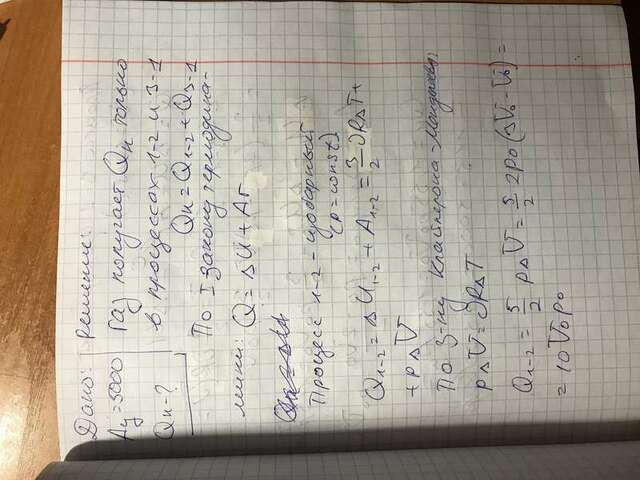 Дано: Решение:
Aц=5000 Газ получает Qн только
Qн-? в процессах 1-2 и 3-1
Qн = Q1-2 + Q3-1
По I закону термодина-
мики: Q = ΔU + Aг
Процесс 1-2 - изобарный
(p=const)
Q1-2 = ΔU1-2 + A1-2 = 3/2 νRΔT+
+ pΔV
По з-ну Клайперона-Менделеева:
pΔV = νRΔT
Q1-2 = 5/2 pΔV = 5/2 2p0 (3V0 - V0) =
= 10 V0p0